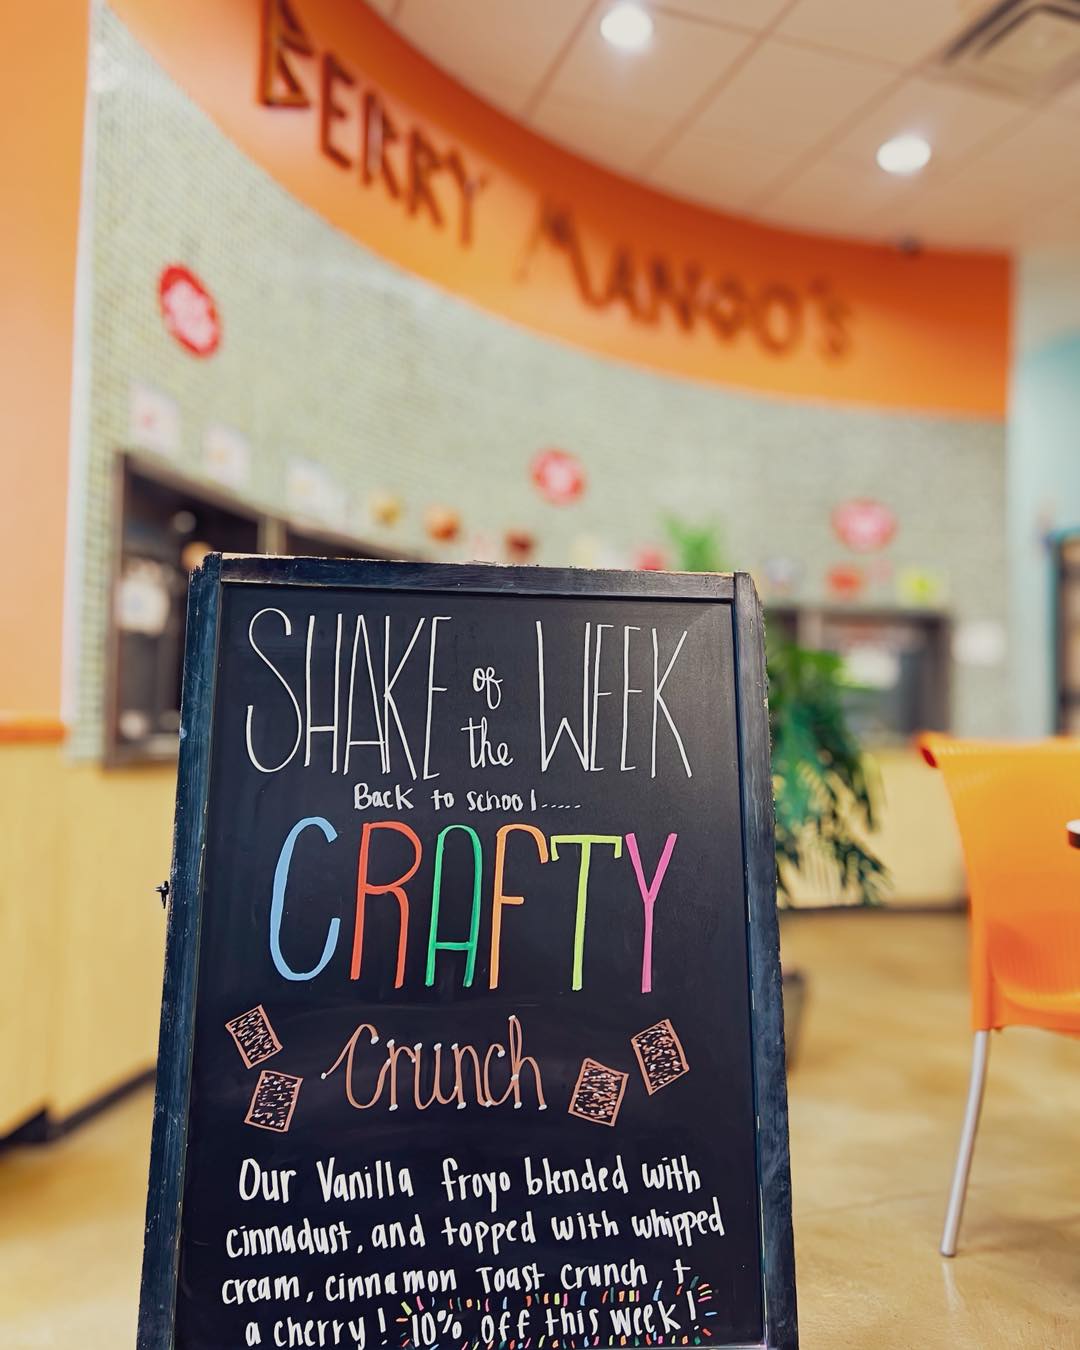 BERRY MANGO'S
SHAKE of the WEEK
Back to school.....
CRAFTY
Crunch
Our Vanilla froyo blended with
cinnadust, and topped with whipped
cream, cinnamon Toast Crunch, +
a cherry! 10% off this week!